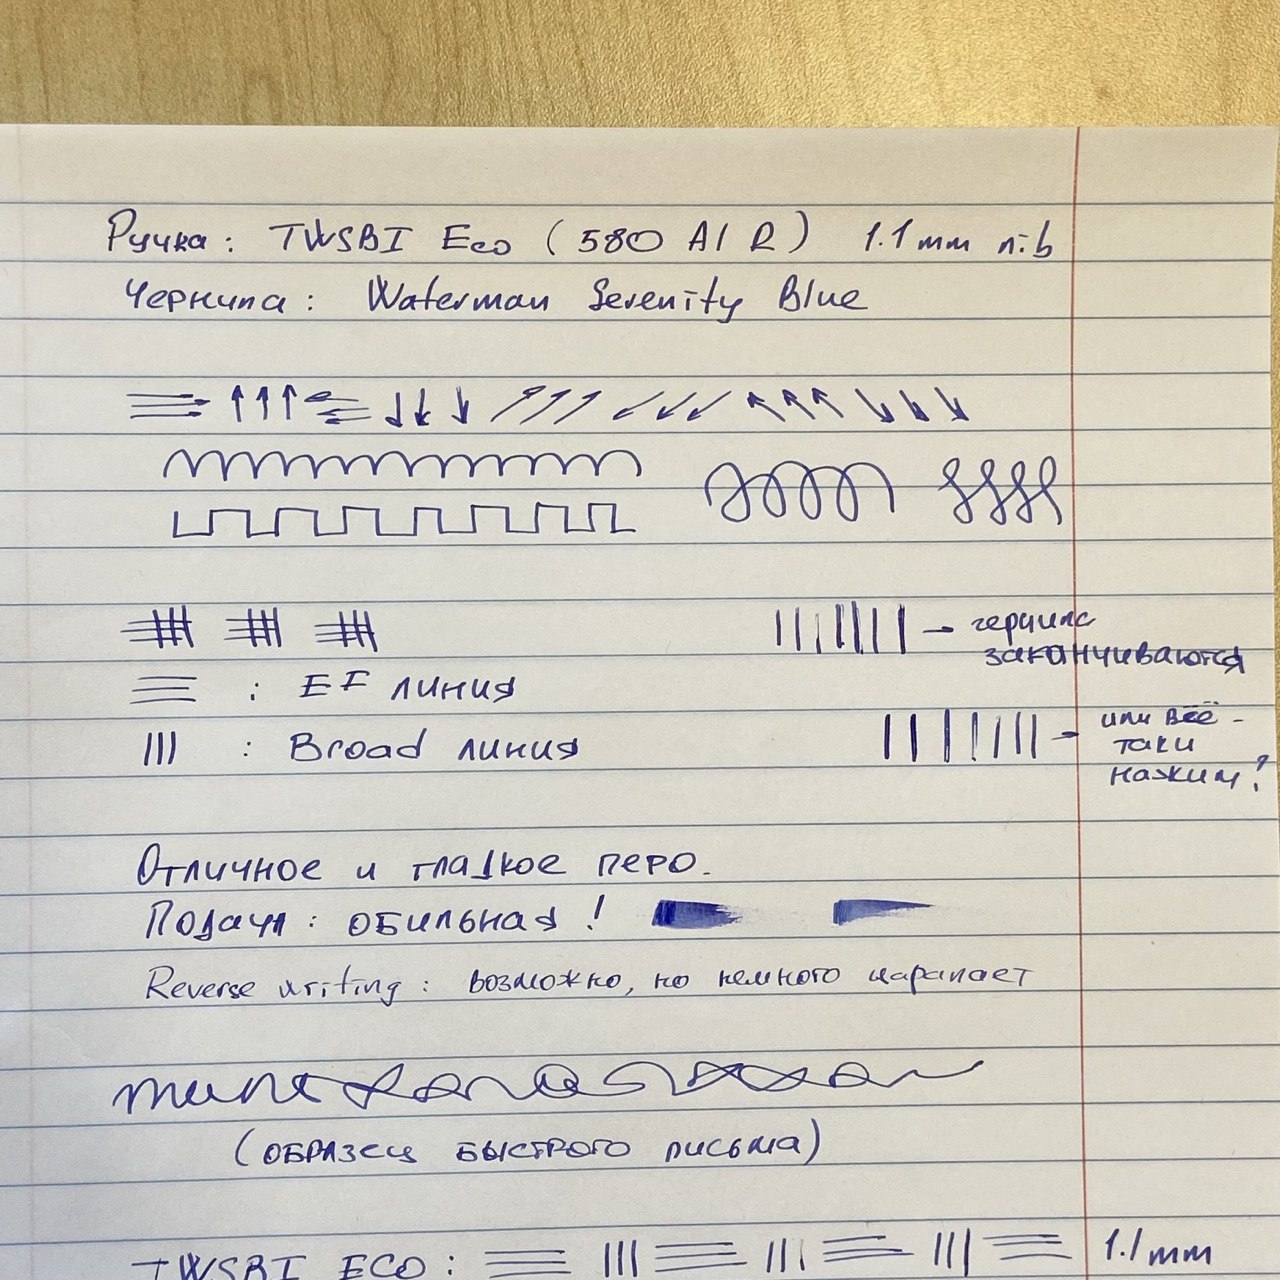 Ручка: TWSBI Eco (580 AIR) 1.1mm nib
Чернила: Waterman Serenity Blue
– чернила
заканчиваются
: EF линия
: Broad линия
– или всё-
таки
нажим?
Отличное и гладкое перо.
Подача: обильная!
Reverse writing: возможно, но немного царапает
(образец быстрого письма)
TWSBI ECO: 1.1mm